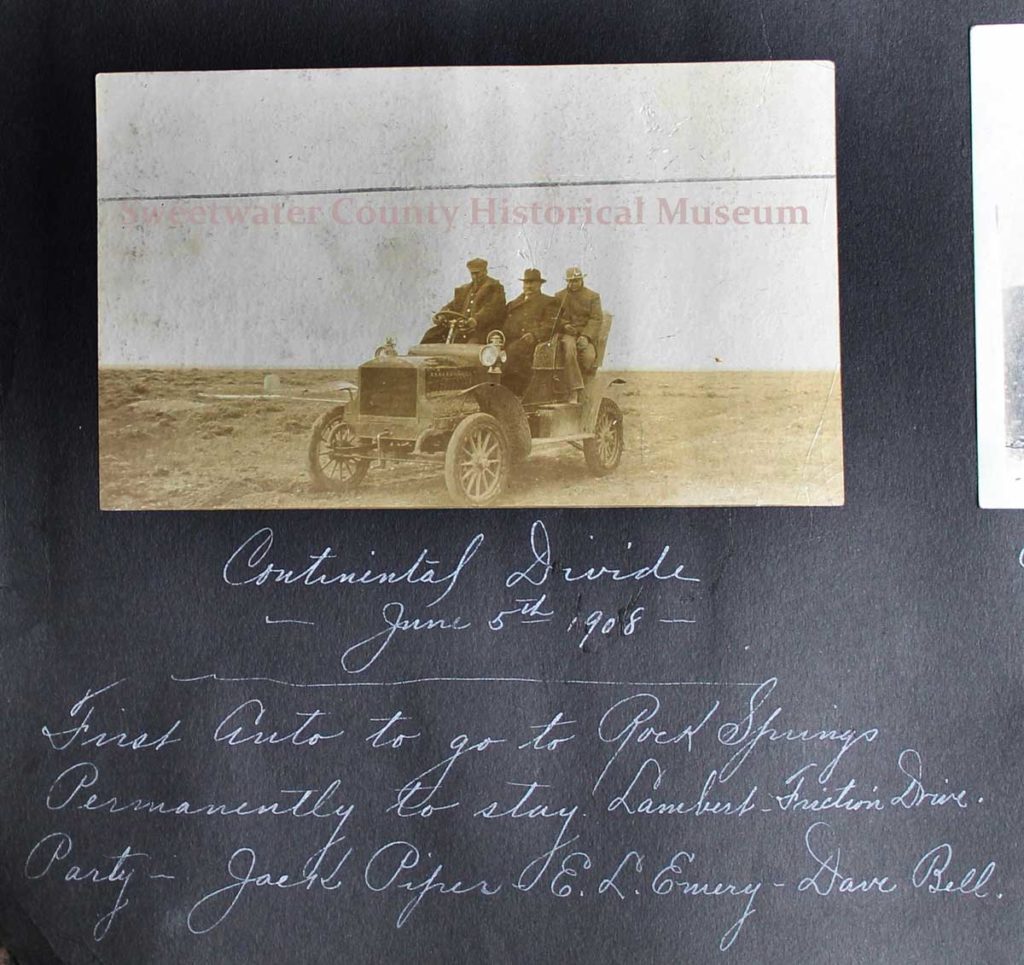 Sweetwater County Historical Museum
Continental Divide
— June 5th 1908 —
First Auto to go to Rock Springs
Permanently to stay. Lambert - Friction Drive.
Party - Jack Piper - E. L. Emery - Dave Bell.